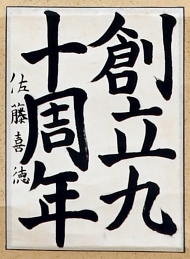 創立九
十周年
佐藤喜徳